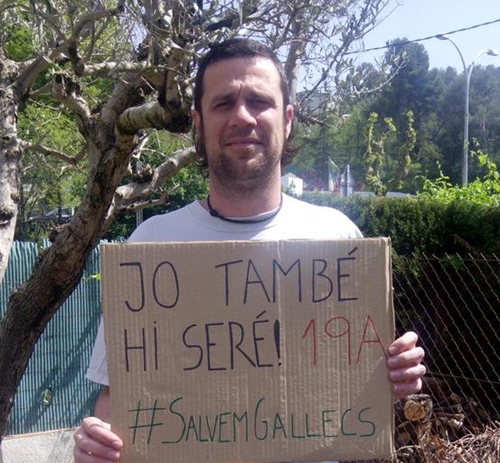 JO TAMBÉ
HI SERÉ! 19A
#SALVEMGALLECS